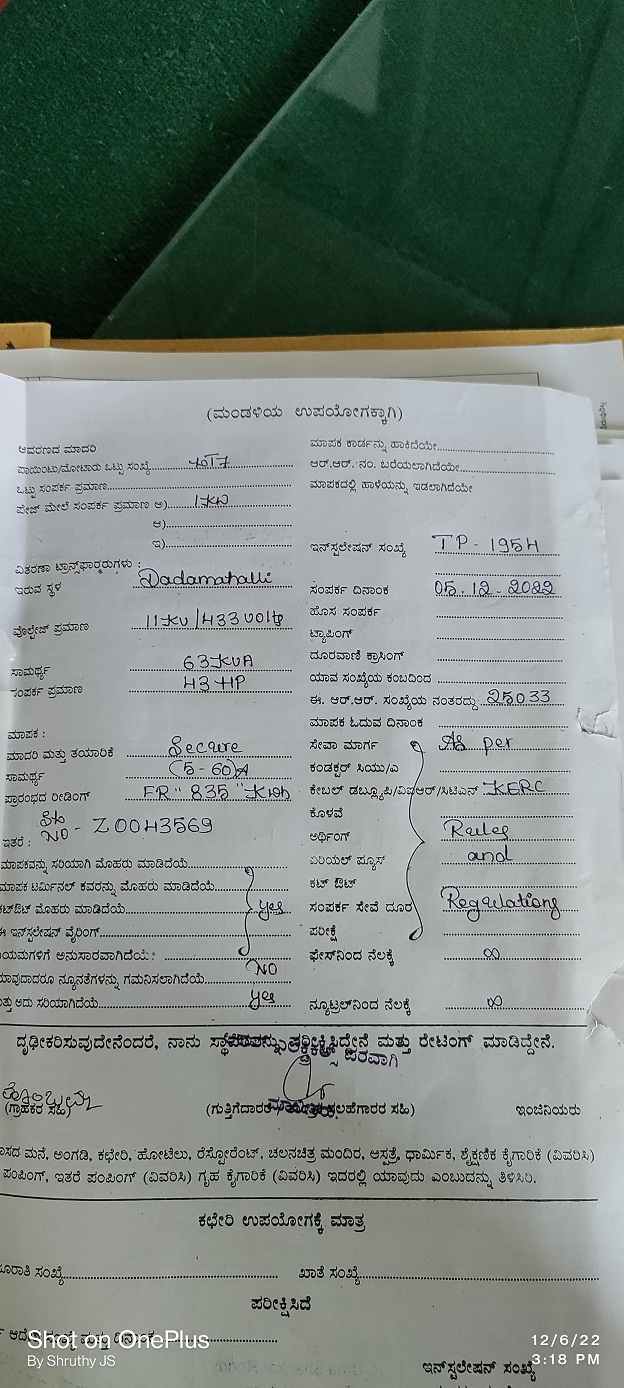 (ಮಂಡಳಿಯ ಉಪಯೋಗಕ್ಕಾಗಿ)
ಆವರಣದ ಮಾದರಿ
ಪಾಯಿಂಟು/ಮೋಟಾರು ಒಟ್ಟು ಸಂಖ್ಯೆ
ಒಟ್ಟು ಸಂಪರ್ಕ ಪ್ರಮಾಣ
ಪೇಜ್ ಮೇಲೆ ಸಂಪರ್ಕ ಪ್ರಮಾಣ ಅ) 1KW
ಆ)
ಇ)
ವಿತರಣಾ ಟ್ರಾನ್ಸ್‌ಫಾರ್ಮರುಗಳು :
ಇರುವ ಸ್ಥಳ Dadamahalli
ವೋಲ್ಟೇಜ್ ಪ್ರಮಾಣ 11KV/433 Volts
ಸಾಮರ್ಥ್ಯ 63KVA
ಸಂಪರ್ಕ ಪ್ರಮಾಣ 43 HP
ಮಾಪಕ :
ಮಾದರಿ ಮತ್ತು ತಯಾರಿಕೆ Secure
ಸಾಮರ್ಥ್ಯ (5-60)A
ಪ್ರಾರಂಭದ ರೀಡಿಂಗ್ FR "835" Kwh
Sl NO - Z0043569
ಇತರೆ :
ಮಾಪಕವನ್ನು ಸರಿಯಾಗಿ ಮೊಹರು ಮಾಡಿದೆಯೆ
ಮಾಪಕ ಟರ್ಮಿನಲ್ ಕವರನ್ನು ಮೊಹರು ಮಾಡಿದೆಯೆ
ಕಟ್‌ಔಟ್ ಮೊಹರು ಮಾಡಿದೆಯೆ yes
ಈ ಇನ್‌ಸ್ಪಲೇಷನ್ ವೈರಿಂಗ್
ಯಮಗಳಿಗೆ ಅನುಸಾರವಾಗಿದೆಯೆ:
ಯಾವುದಾದರೂ ನ್ಯೂನತೆಗಳನ್ನು ಗಮನಿಸಲಾಗಿದೆಯೆ NO
ತ್ತು ಅದು ಸರಿಯಾಗಿದೆಯೆ yes
ಮಾಪಕ ಕಾರ್ಡನ್ನು ಹಾಕಿದೆಯೇ
ಆರ್.ಆರ್. ನಂ. ಬರೆಯಲಾಗಿದೆಯೇ
ಮಾಪಕದಲ್ಲಿ ಹಾಳೆಯನ್ನು ಇಡಲಾಗಿದೆಯೇ
ಇನ್‌ಸ್ಪಲೇಷನ್ ಸಂಖ್ಯೆ TP-1954
ಸಂಪರ್ಕ ದಿನಾಂಕ 05.12-2022
ಹೊಸ ಸಂಪರ್ಕ
ಟ್ಯಾಪಿಂಗ್
ದೂರವಾಣಿ ಕ್ರಾಸಿಂಗ್
ಯಾವ ಸಂಖ್ಯೆಯ ಕಂಬದಿಂದ
ಈ. ಆರ್.ಆರ್. ಸಂಖ್ಯೆಯ ನಂತರದ್ದು 25033
ಮಾಪಕ ಓದುವ ದಿನಾಂಕ
ಸೇವಾ ಮಾರ್ಗ As per
ಕಂಡಕ್ಟರ್ ಸಿಯು/ಎ
ಕೇಬಲ್ ಡಬ್ಲ್ಯೂಪಿ/ವಿಐಆರ್/ಸಿಟಿಎಸ್ KERC
ಕೊಳವೆ
ಅರ್ಥಿಂಗ್ Rules
ಏರಿಯಲ್ ಪ್ಯೂಸ್ and
ಕಟ್ ಔಟ್
ಸಂಪರ್ಕ ಸೇವೆ ದೂರ Regulations
ಪರೀಕ್ಷೆ
ಫೇಸ್‌ನಿಂದ ನೆಲಕ್ಕೆ ∞
ನ್ಯೂಟ್ರಲ್‌ನಿಂದ ನೆಲಕ್ಕೆ ∞
ದೃಢೀಕರಿಸುವುದೇನೆಂದರೆ, ನಾನು ಮತ್ತು ರೇಟಿಂಗ್ ಮಾಡಿದ್ದೇನೆ.
ಪರವಾಗಿ
(ಗ್ರಾಹಕರ ಸಹಿ) (ಗುತ್ತಿಗೆದಾರರ ಸಲಹೆಗಾರರ ಸಹಿ) ಇಂಜಿನಿಯರು
ಾಸದ ಮನೆ, ಅಂಗಡಿ, ಕಛೇರಿ, ಹೋಟೆಲು, ರೆಸ್ಟೋರೆಂಟ್, ಚಲನಚಿತ್ರ ಮಂದಿರ, ಆಸ್ಪತ್ರೆ, ಧಾರ್ಮಿಕ, ಶೈಕ್ಷಣಿಕ ಕೈಗಾರಿಕೆ (ವಿವರಿಸಿ)
ಪಂಪಿಂಗ್, ಇತರೆ ಪಂಪಿಂಗ್ (ವಿವರಿಸಿ) ಗೃಹ ಕೈಗಾರಿಕೆ (ವಿವರಿಸಿ) ಇದರಲ್ಲಿ ಯಾವುದು ಎಂಬುದನ್ನು ತಿಳಿಸಿರಿ.
ಕಛೇರಿ ಉಪಯೋಗಕ್ಕೆ ಮಾತ್ರ
ೂರಾತಿ ಸಂಖ್ಯೆ ಖಾತೆ ಸಂಖ್ಯೆ
ಪರೀಕ್ಷಿಸಿದೆ
ಇನ್‌ಸ್ಪಲೇಷನ್ ಸಂಖ್ಯೆ
Shot on OnePlus
By Shruthy JS
12/6/22
3:18 PM